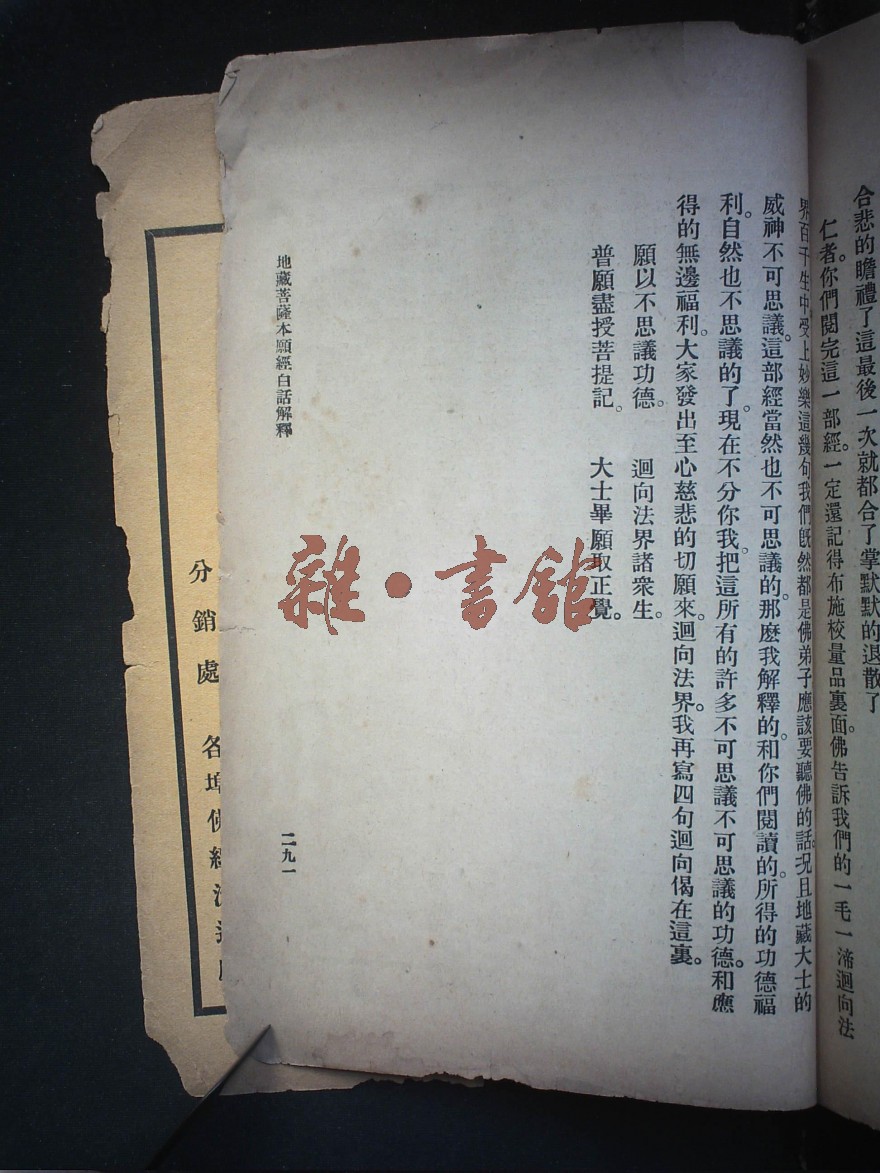 合悲的瞻禮了這最後一次就都合了掌默默的退散了
仁者。你們閱完這一部經。一定還記得布施校量品裏面。佛告訴我們的一毛一渧迴向法
界百千生中受上妙樂這幾句我們旣然都是佛弟子應該要聽佛的話。况且地藏大士的
威神不可思議。這部經當然也不可思議的。那麼我解釋的。和你們閱讀的。所得的功德福
利。自然也不思議的了。現在不分你我。把這所有的許多不可思議不可思議的功德。和應
得的無邊福利。大家發出至心慈悲的切願來。迴向法界。我再寫四句迴向偈在這裏。
願以不思議功德。 迴向法界諸衆生。
普願盡授菩提記。 大士畢願取正覺。
地藏菩薩本願經白話解釋
二九一
分銷處 各埠佛經流通
雜·書館